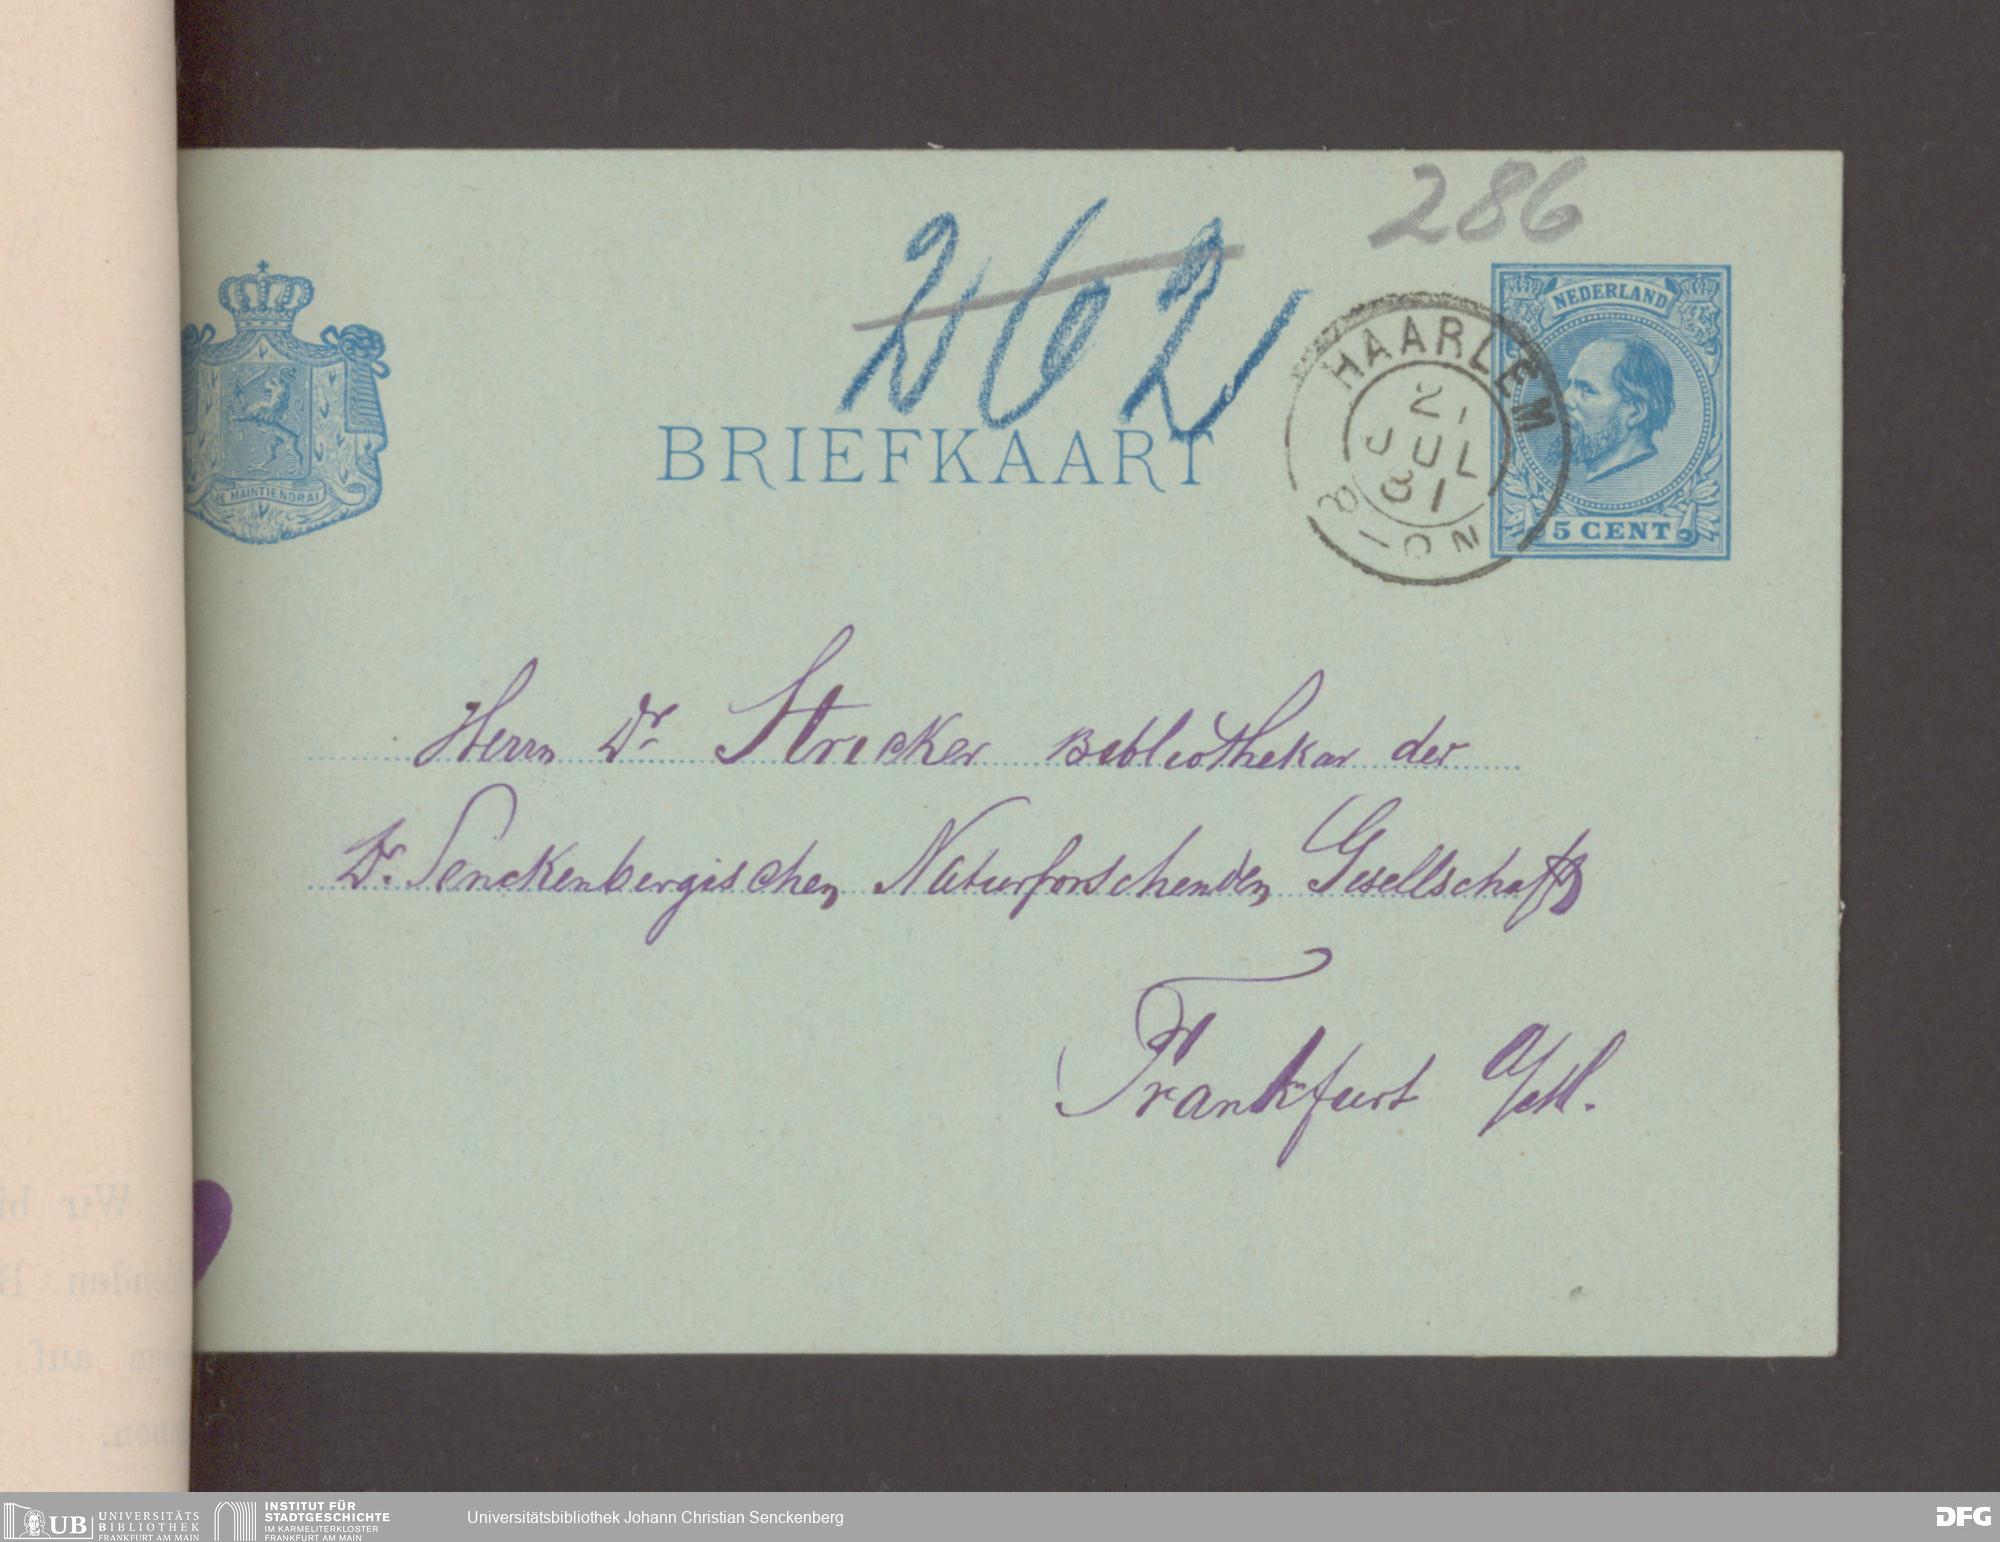 286
262
NEDERLAND
HAARLEM
21
JUL
81
STATION
5 CENT
JE MAINTIENDRAI
BRIEFKAART
Herrn Dr Stricker Bibliothekar der
Dr. Senckenbergischen Naturforschenden Gesellschaft
Frankfurt a/M.
UB UNIVERSITÄTS
BIBLIOTHEK
FRANKFURT AM MAIN
INSTITUT FÜR
STADTGESCHICHTE
IM KARMELITERKLOSTER
FRANKFURT AM MAIN
Universitätsbibliothek Johann Christian Senckenberg
DFG